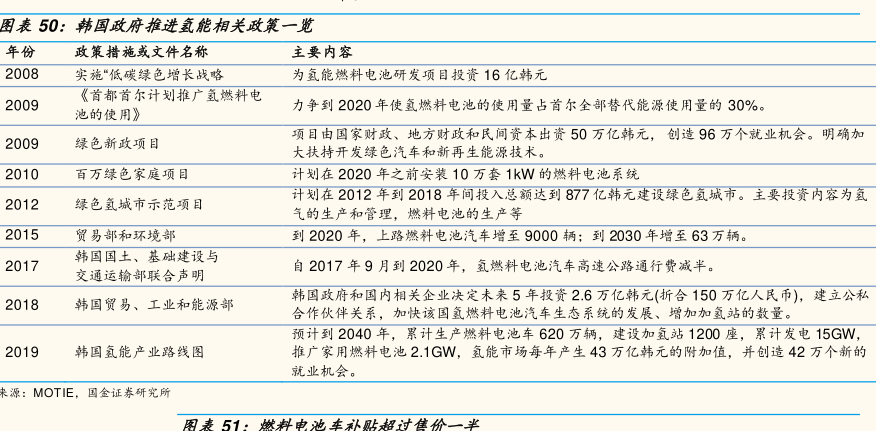 图表 50：韩国政府推进氢能相关政策一览
年份 政策措施或文件名称 主要内容
2008 实施“低碳绿色增长战略 为氢能燃料电池研发项目投资 16 亿韩元
2009 《首都首尔计划推广氢燃料电
池的使用》 力争到 2020 年使氢燃料电池的使用量占首尔全部替代能源使用量的 30%。
2009 绿色新政项目 项目由国家财政、地方财政和民间资本出资 50 万亿韩元，创造 96 万个就业机会。明确加
大扶持开发绿色汽车和新再生能源技术。
2010 百万绿色家庭项目 计划在 2020 年之前安装 10 万套 1kW 的燃料电池系统
2012 绿色氢城市示范项目 计划在 2012 年到 2018 年间投入总额达到 877 亿韩元建设绿色氢城市。主要投资内容为氢
气的生产和管理，燃料电池的生产等
2015 贸易部和环境部 到 2020 年，上路燃料电池汽车增至 9000 辆；到 2030 年增至 63 万辆。
2017 韩国国土、基础建设与
交通运输部联合声明 自 2017 年 9 月到 2020 年，氢燃料电池汽车高速公路通行费减半。
2018 韩国贸易、工业和能源部 韩国政府和国内相关企业决定未来 5 年投资 2.6 万亿韩元(折合 150 万亿人民币)，建立公私
合作伙伴关系，加快该国氢燃料电池汽车生态系统的发展、增加加氢站的数量。
2019 韩国氢能产业路线图 预计到 2040 年，累计生产燃料电池车 620 万辆，建设加氢站 1200 座，累计发电 15GW，
推广家用燃料电池 2.1GW，氢能市场每年产生 43 万亿韩元的附加值，并创造 42 万个新的
就业机会。
来源：MOTIE，国金证券研究所
图表 51：燃料电池车补贴超过售价一半